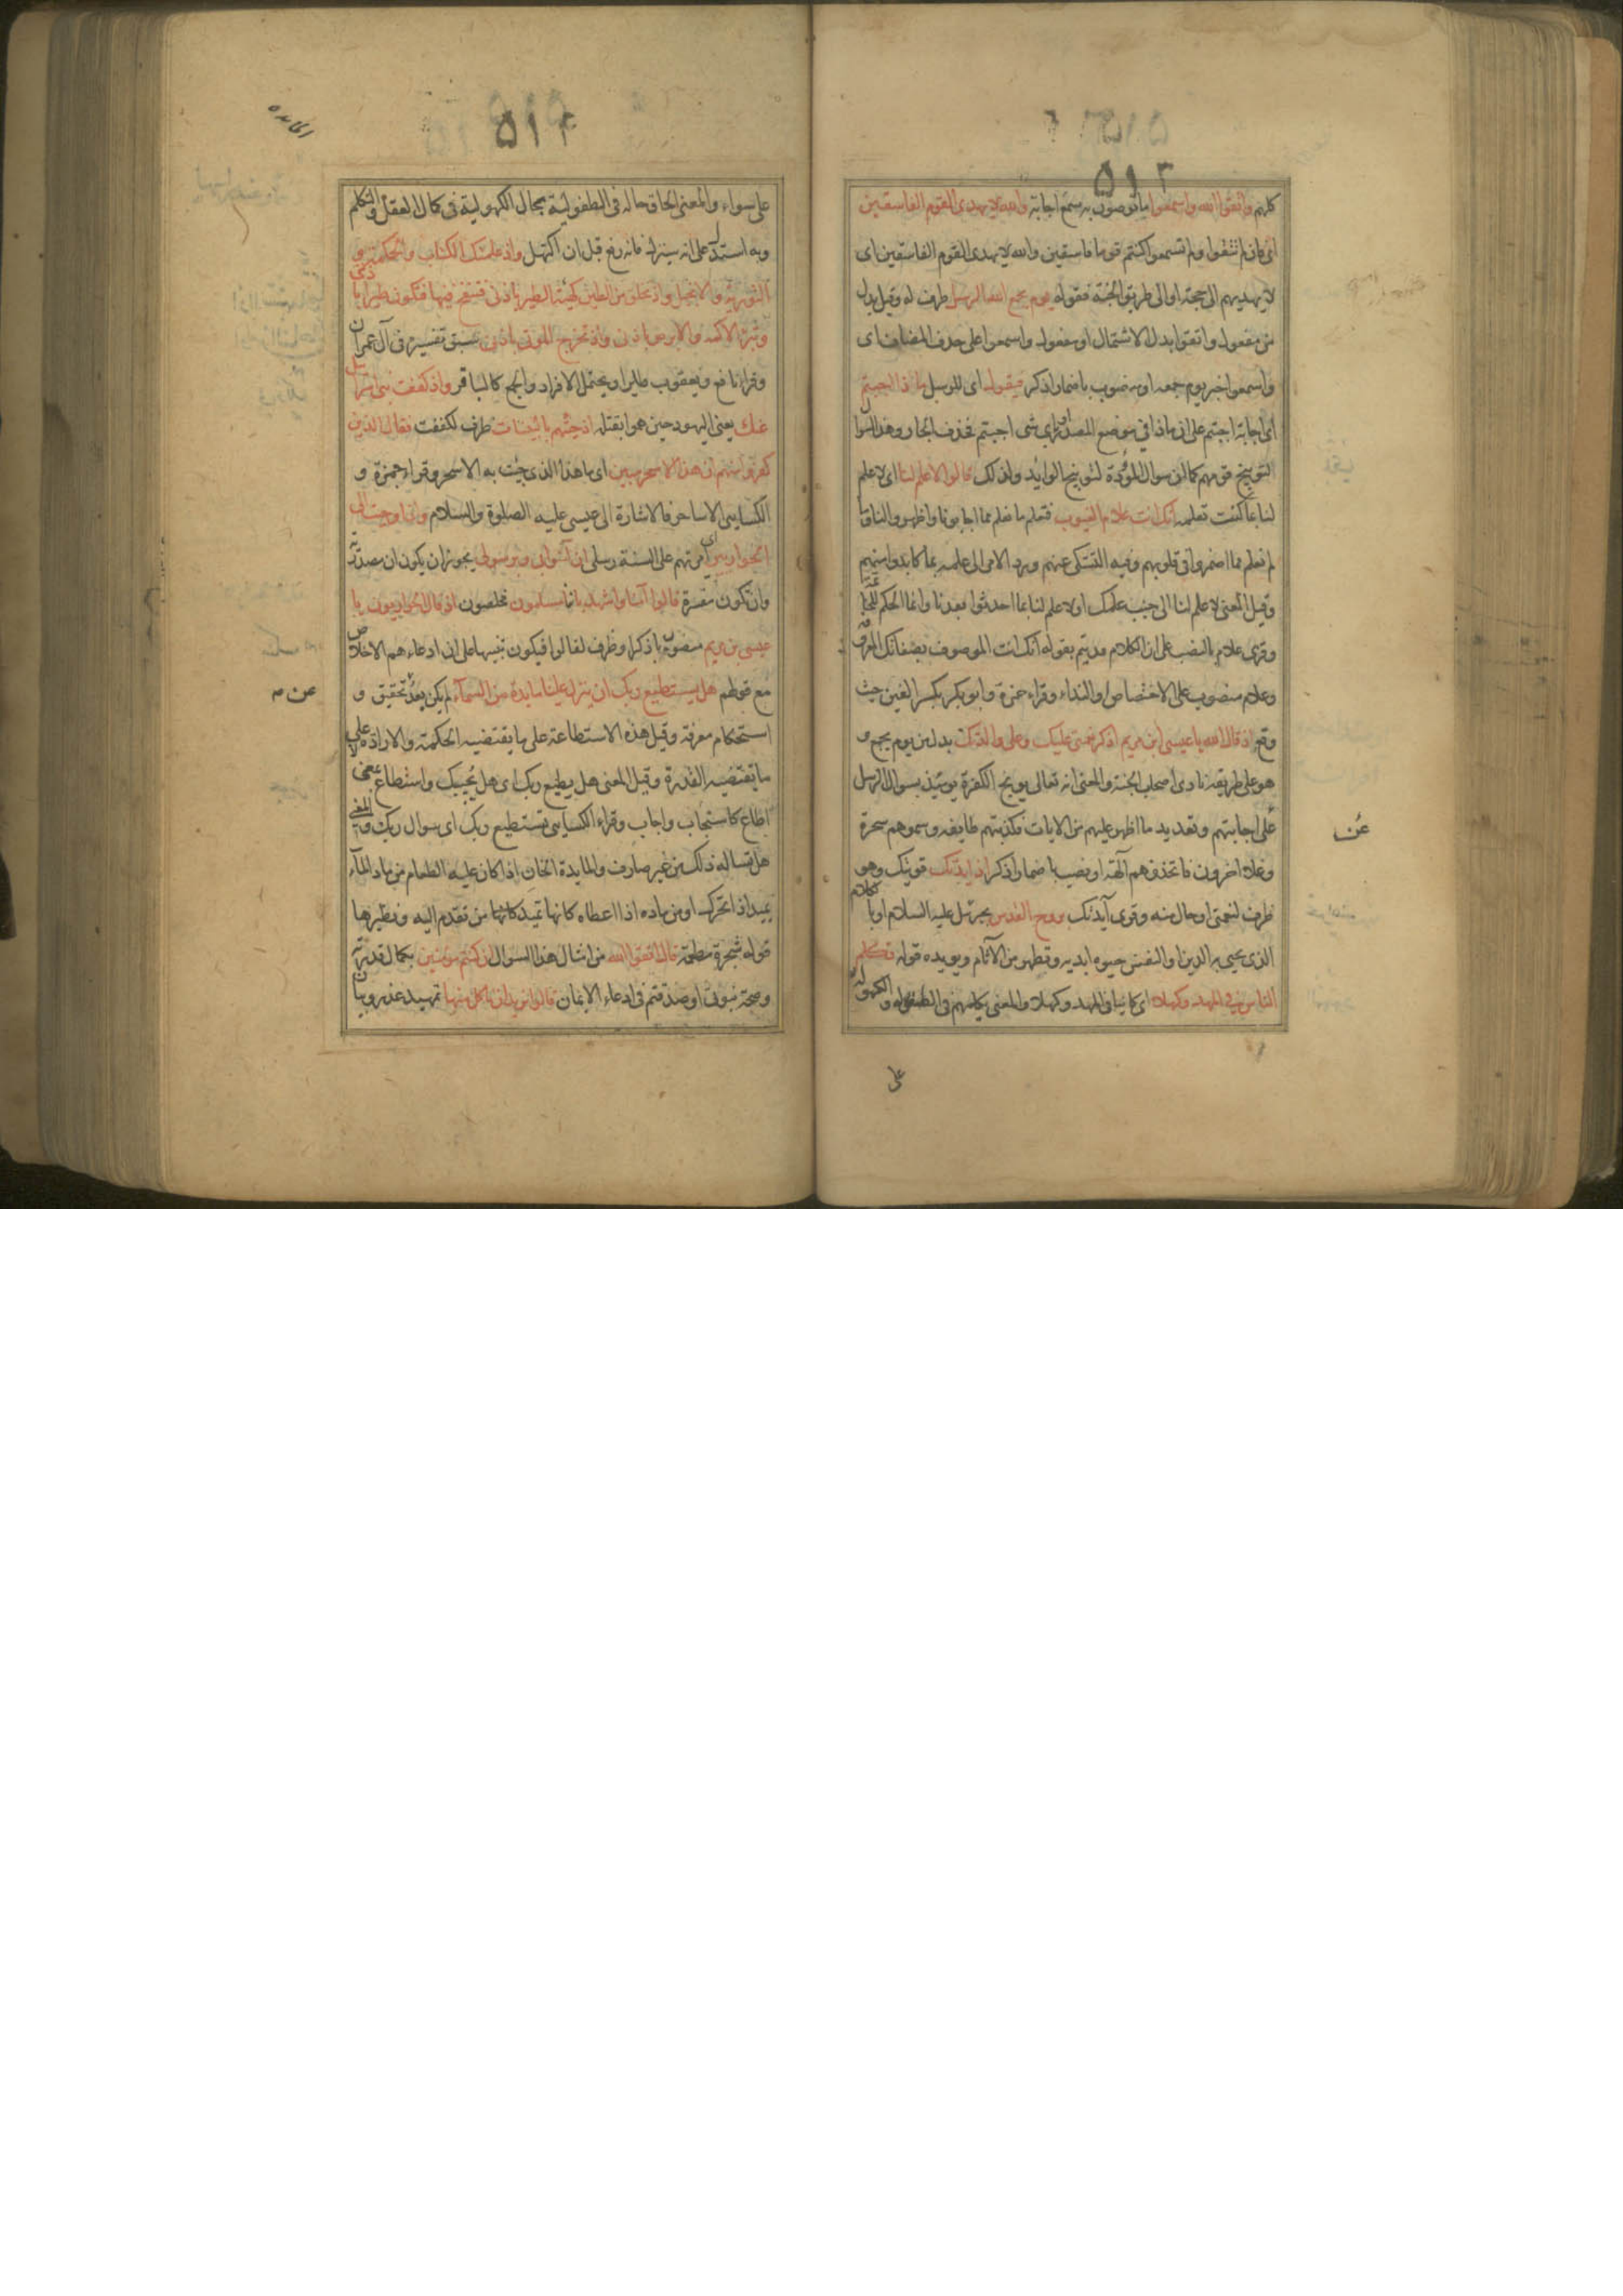 ٥١٣
كلهم واتقوا الله واسمعوا ما توصون به سمع اجابة والله لا يهدى القوم الفاسقين
اى فان لم تتقوا ولم تسمعوا كنتم قوما فاسقين والله لا يهدى القوم الفاسقين اى
لا يهديهم الى حجة او الى طريق الجنة فقوله يوم يجمع الله الرسل ظرف له وقيل بدل
من مفعول واتقوا بدل الاشتمال او مفعول واسمعوا على حذف المضاف اى
واسمعوا خبر يوم جمعه او منصوب باضمار اذكر فيقول اى للرسل ماذا اجبتم
اى اجابة اجبتم على ان ماذا فى موضع المصدر او باى شى اجبتم فحذف الجار وهذا السوال
لتوبيخ قومهم كما ان سوال الموؤدة لتوبيخ الوايد ولذلك قالوا لا علم لنا اى لا علم
لنا بما كنت تعلمه انك انت علام الغيوب فتعلم ما نعلم مما اجابونا واظهروا لنا وما
لم نعلم مما اضمروا فى قلوبهم وفيه التشكى عنهم ورد الامر الى علمه بما كابدوا منهم
وقيل المعنى لا علم لنا الى جنب علمك او لا علم لنا بما احدثوا بعدنا وانما الحكم للخاتمة
وقرى علام بالنصب على ان الكلام قد تم بقوله انك انت الموصوف بصفاتك المعروفة
وعلام منصوب على الاختصاص او النداء وقراء حمزة وابو بكر بكسر الغين حيث
وقع اذ قال الله يا عيسى ابن مريم اذكر نعمتى عليك وعلى والدتك بدل من يوم يجمع و
هو على طريقة نادى اصحاب الجنة والمعنى انه تعالى يوبخ الكفرة يومئذ بسوال الرسل
على اجابتهم وتعديد ما اظهر عليهم من الايات فكذبتهم طايفة وسموهم سحرة
عن
وغلا اخرون فاتخذوهم آلهة او نصب باضمار اذكر اذ ايدتك قويتك وهو
ظرف لنعمتى او حال منه وقرى آيدتك بروح القدس بجبرئيل عليه السلام او بالكلام
الذى يحيى به الدين او النفس حيوه ابديه وتطهر من الآثام ويويده قوله تكلم
الناس فى المهد وكهلا اى كاينا فى المهد وكهلا والمعنى يكلمهم فى الطفوله والكهولة
على
المايده
٥١٤
على سواء والمعنى الحاق حاله فى الطفولية بحال الكهولية فى كمال العقل والتكلم
وبه استدل على انه سينزل فانه رفع قبل ان اكتهل واذ علمتك الكتاب والحكمة و
التورية والانجيل واذ تخلق من الطين كهيئة الطير باذنى فتنفخ فيها فتكون طيرا باذنى
وتبرئ الاكمه والابرص باذنى واذ تخرج الموتى باذنى سبق تفسيره فى آل عمران
وقرا نافع ويعقوب طايرا ويحتمل الافراد والجمع كالباقر واذ كففت بنى اسرائيل
عنك يعنى اليهود حين هموا بقتله اذ جئتهم بالبينات ظرف لكففت فقال الذين
كفروا منهم ان هذا الا سحر مبين اى ما هذا الذى جئت به الا سحر وقراء حمزة و
الكسايى الا ساحر فالاشارة الى عيسى عليه الصلوة والسلام واذ اوحيت الى
الحواريين اى امرتهم على السنة رسلى ان آمنوا بى وبرسولى يجوز ان يكون ان مصدرية
وان تكون مفسرة قالوا آمنا واشهد باننا مسلمون مخلصون اذ قال الحواريون يا
عيسى بن مريم منصوب باذكر او ظرف لقالوا فيكون تنبيها على ان ادعاءهم الاخلاص
عن م
مع قولهم هل يستطيع ربك ان ينزل علينا مايدة من السمآء لم يكن بعد تحقيق و
استحكام معرفة وقيل هذه الاستطاعة على ما يقتضيه الحكمة والارادة لا على
ما يقتضيه القدرة وقيل المعنى هل يطيع ربك اى هل يجيبك واستطاع بمعنى
اطاع كاستجاب واجاب وقراء الكسايى تستطيع ربك اى سوال ربك والمعنى
هل تساله ذلك من غير صارف والمايدة الخان اذا كان عليه الطعام من ماد المآء
يميد اذا تحرك او من ماده اذا اعطاه كانها تميد من تقدم اليه ونظيرها
قوله شجرة مطعمة قال اتقوا الله من امثال هذا السوال ان كنتم مومنين بكمال قدرته
وصحة نبوتى او صدقتم فى ادعاء الايمان قالوا نريد ان ناكل منها تمهيد عذر وبيان